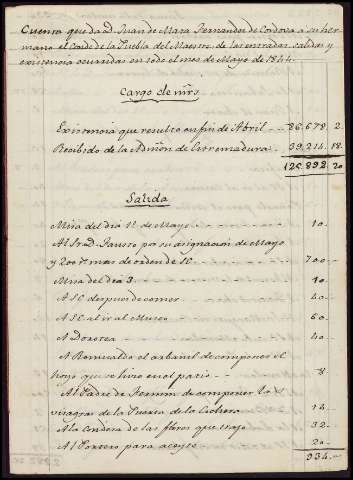 Cuenta que da d. Juan de Mata Fernandez de Cordova a su her-
mano el Conde de la Puebla del Maestre, de las entradas, salidas y
existencia ocurridas en todo el mes de Mayo de 1844.
Cargo de mrs.
Existencia que resultó en fin de Abril 86.678, 2
Recibido de la Admon de Estremadura 39.214, 18
125.892, 20
Salida
Misa del dia 1º de Mayo 10
Al Sr. D. por su asignacion de Mayo
y 200 rs mas de orden de SC 700
Misa del dia 3 10
A SC despues de comer 40
A SC al ir al Museo 60
A Dorotea 40
A Romualdo el arbanil de componer el
hoyo que se hizo en el patio 8
Al Padre de de componer las
visagras de la Puerta de la Cochera 14
A la de las flores que trajo 32
Al Portero para aceyte 20
934